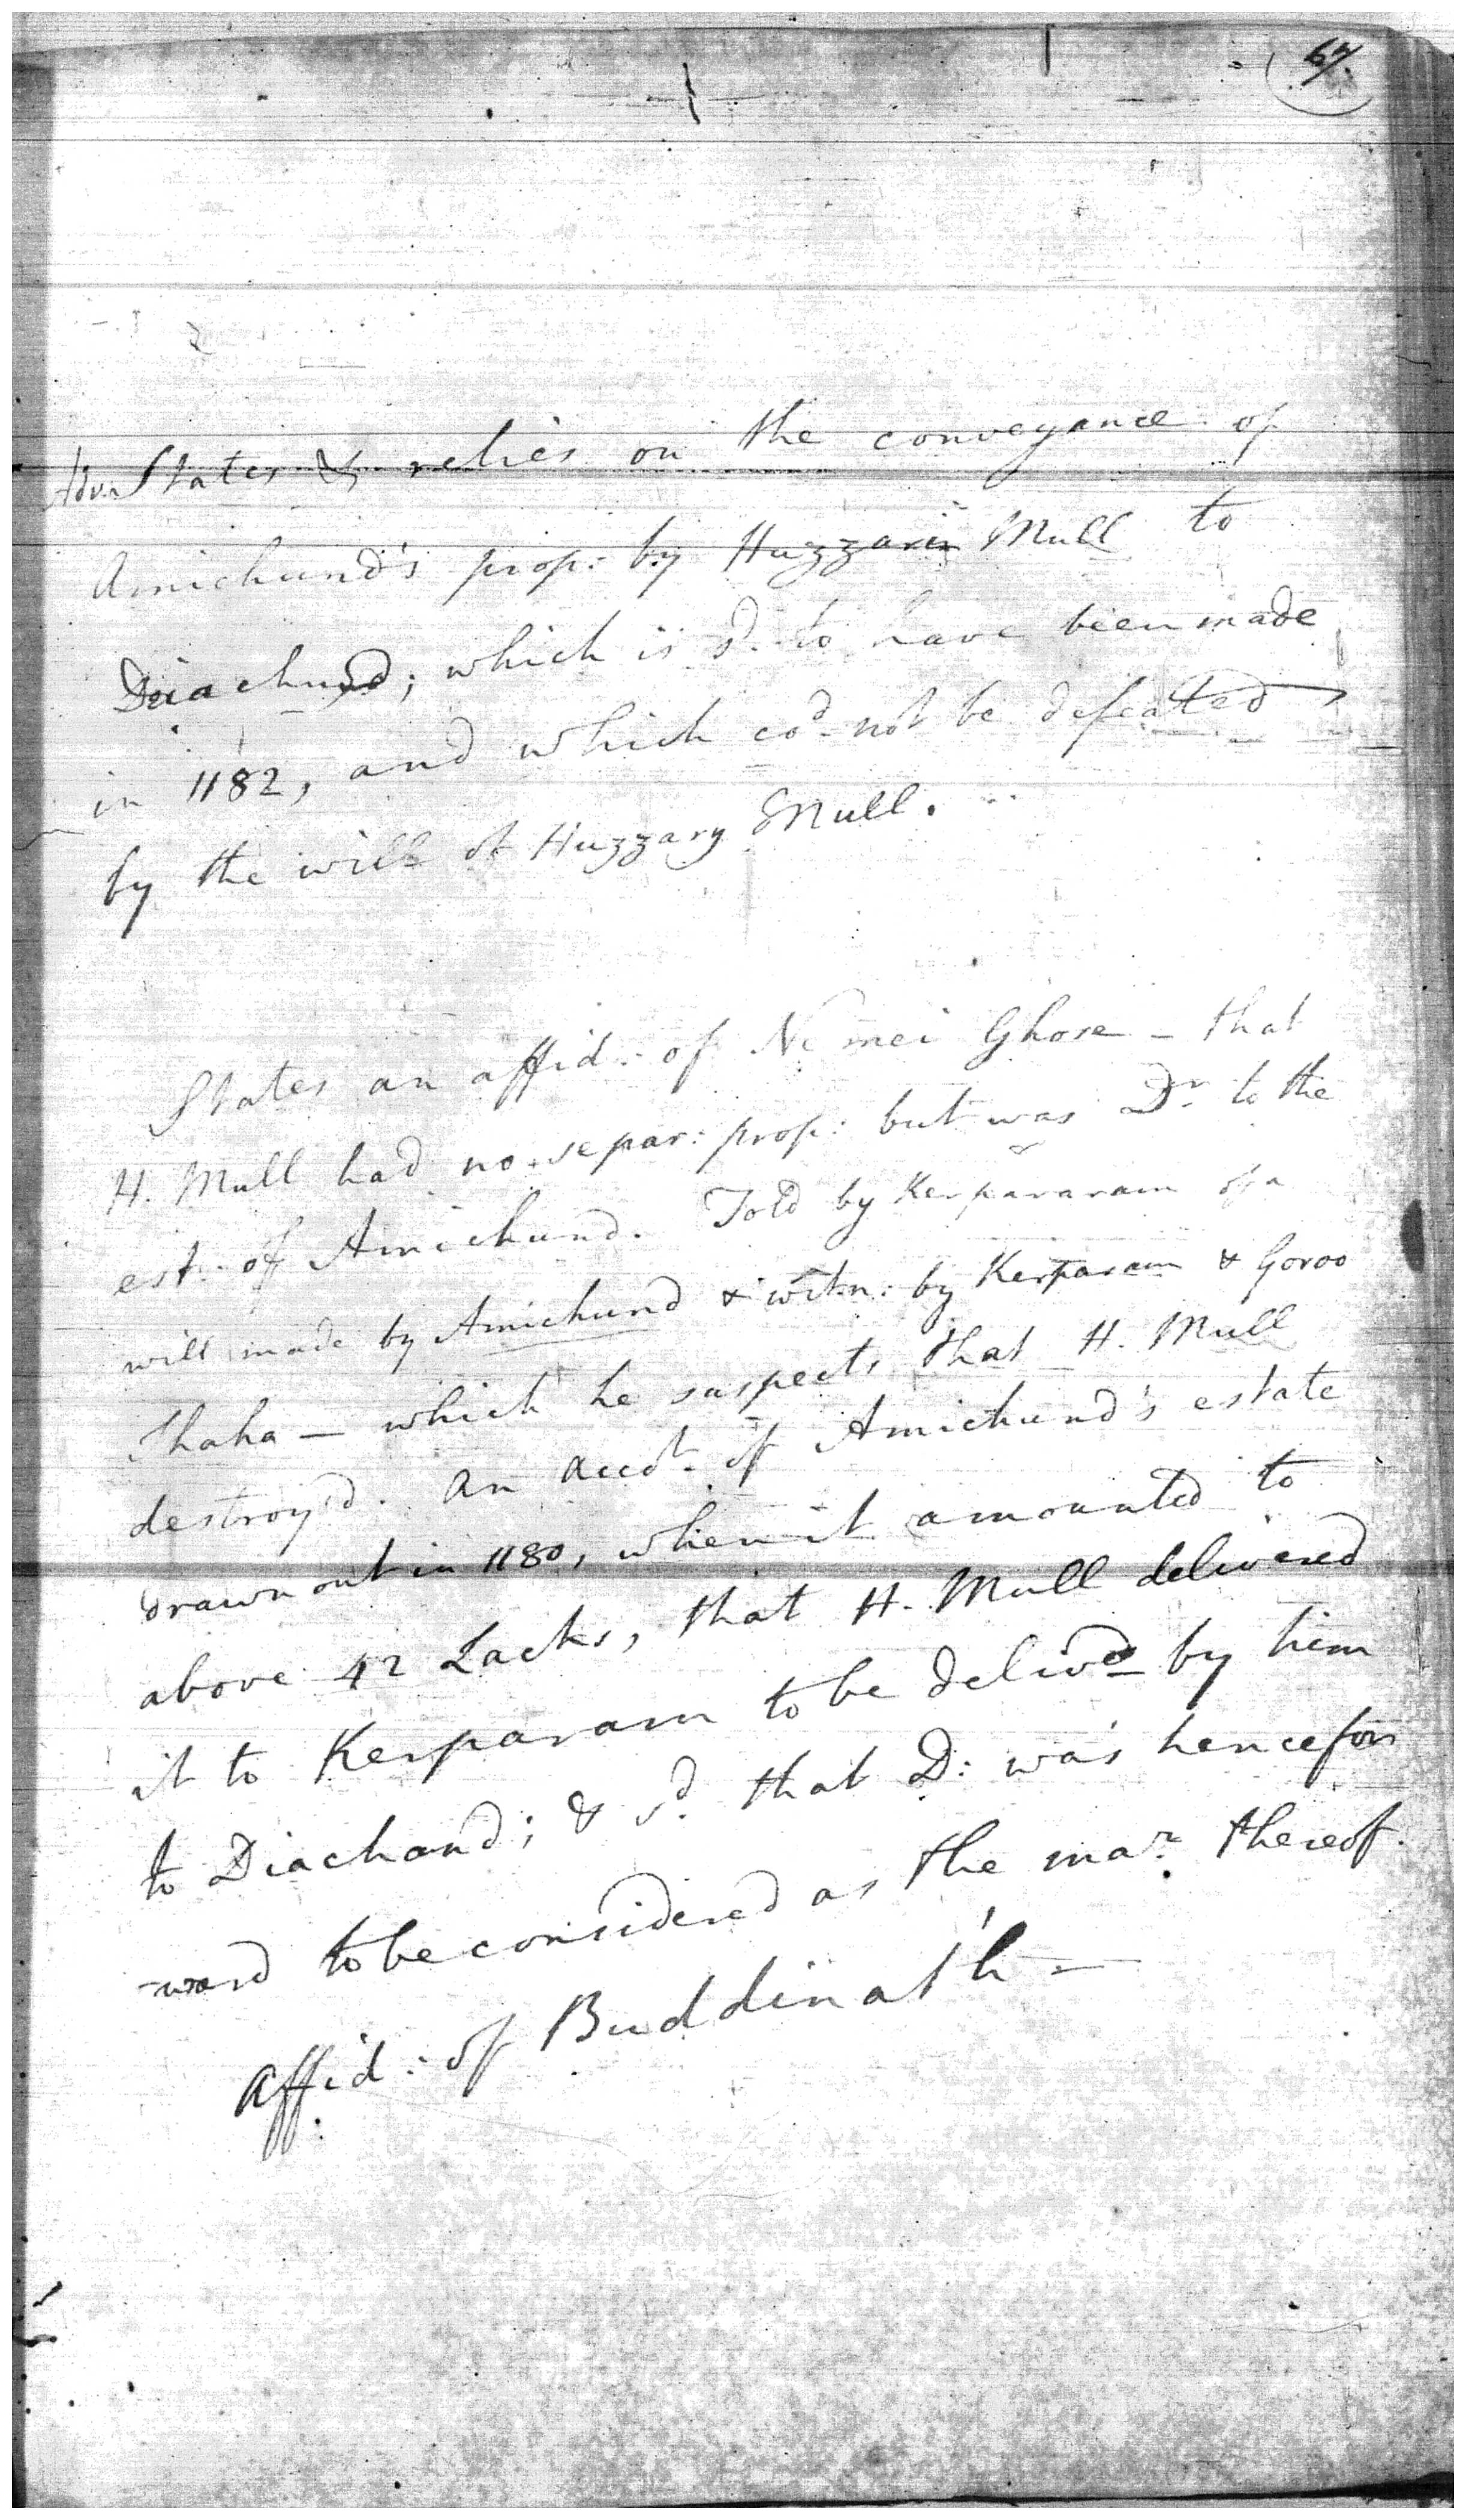 67.
Adv. States & relies on the conveyance of
Amichund's prop: by Huzzarii Mull to
Diachund; which is sd. to have been made
in 1182, and which cod not be defeated
by the will of Huzzary Mull.
States an affid: of Nemei Ghose - that
H. Mull had no separ: prop: but was Dr. to the
est: of Amichund. Told by Kerpararam of a
will made by Amichund & witn: by Kerparam & Goroo
Thaha - which he suspects that H. Mull
destroy'd. An acct. of Amichund's estate
drawn out in 1180, when it amounted to
above 42 Lacks, that H. Mull delivered
it to Kerparam to be delivd by him
to Diachand; & sd. that D: was hencefor
-ward to be considered as the mar. thereof.
Affid: of Buddinath -